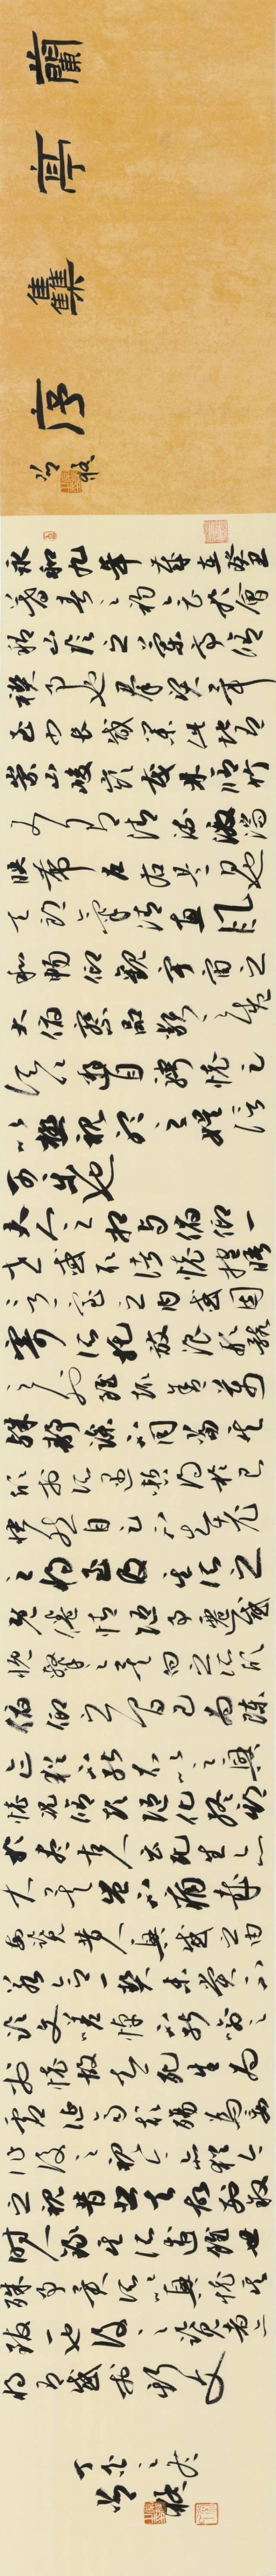 蘭亭集序
永和九年歲在癸丑
暮春之初會於會
稽山陰之蘭亭脩
禊事也羣賢畢
至少長咸集此地有
崇山峻領茂林脩竹
又有清流激湍
映帶左右是日也
天朗氣清惠風
和暢仰觀宇宙之
大俯察品類之盛
所以遊目騁懷足
以極視聽之娛信
可樂也
夫人之相與俯仰一
世或取諸懷抱悟
言一室之內或因
寄所託放浪形骸
之外雖取舍萬
殊靜躁不同當其
欣於所遇暫得於己
快然自足不知老
之將至及其所之
既倦情隨事遷感
慨係之矣向之所欣
俛仰之間已為陳
迹猶不能不以之興
懷況脩短隨化終期
於盡古人云死生亦
大矣豈不痛哉
每覽昔人興感之由
若合一契未嘗不
臨文嗟悼不能喻之
於懷固知一死生為
虛誕齊彭殤為妄
作後之視今亦猶今
之視昔悲夫故列敘
時人錄其所述雖世
殊事異所以興懷其
致一也後之覽者亦
將有感於斯文